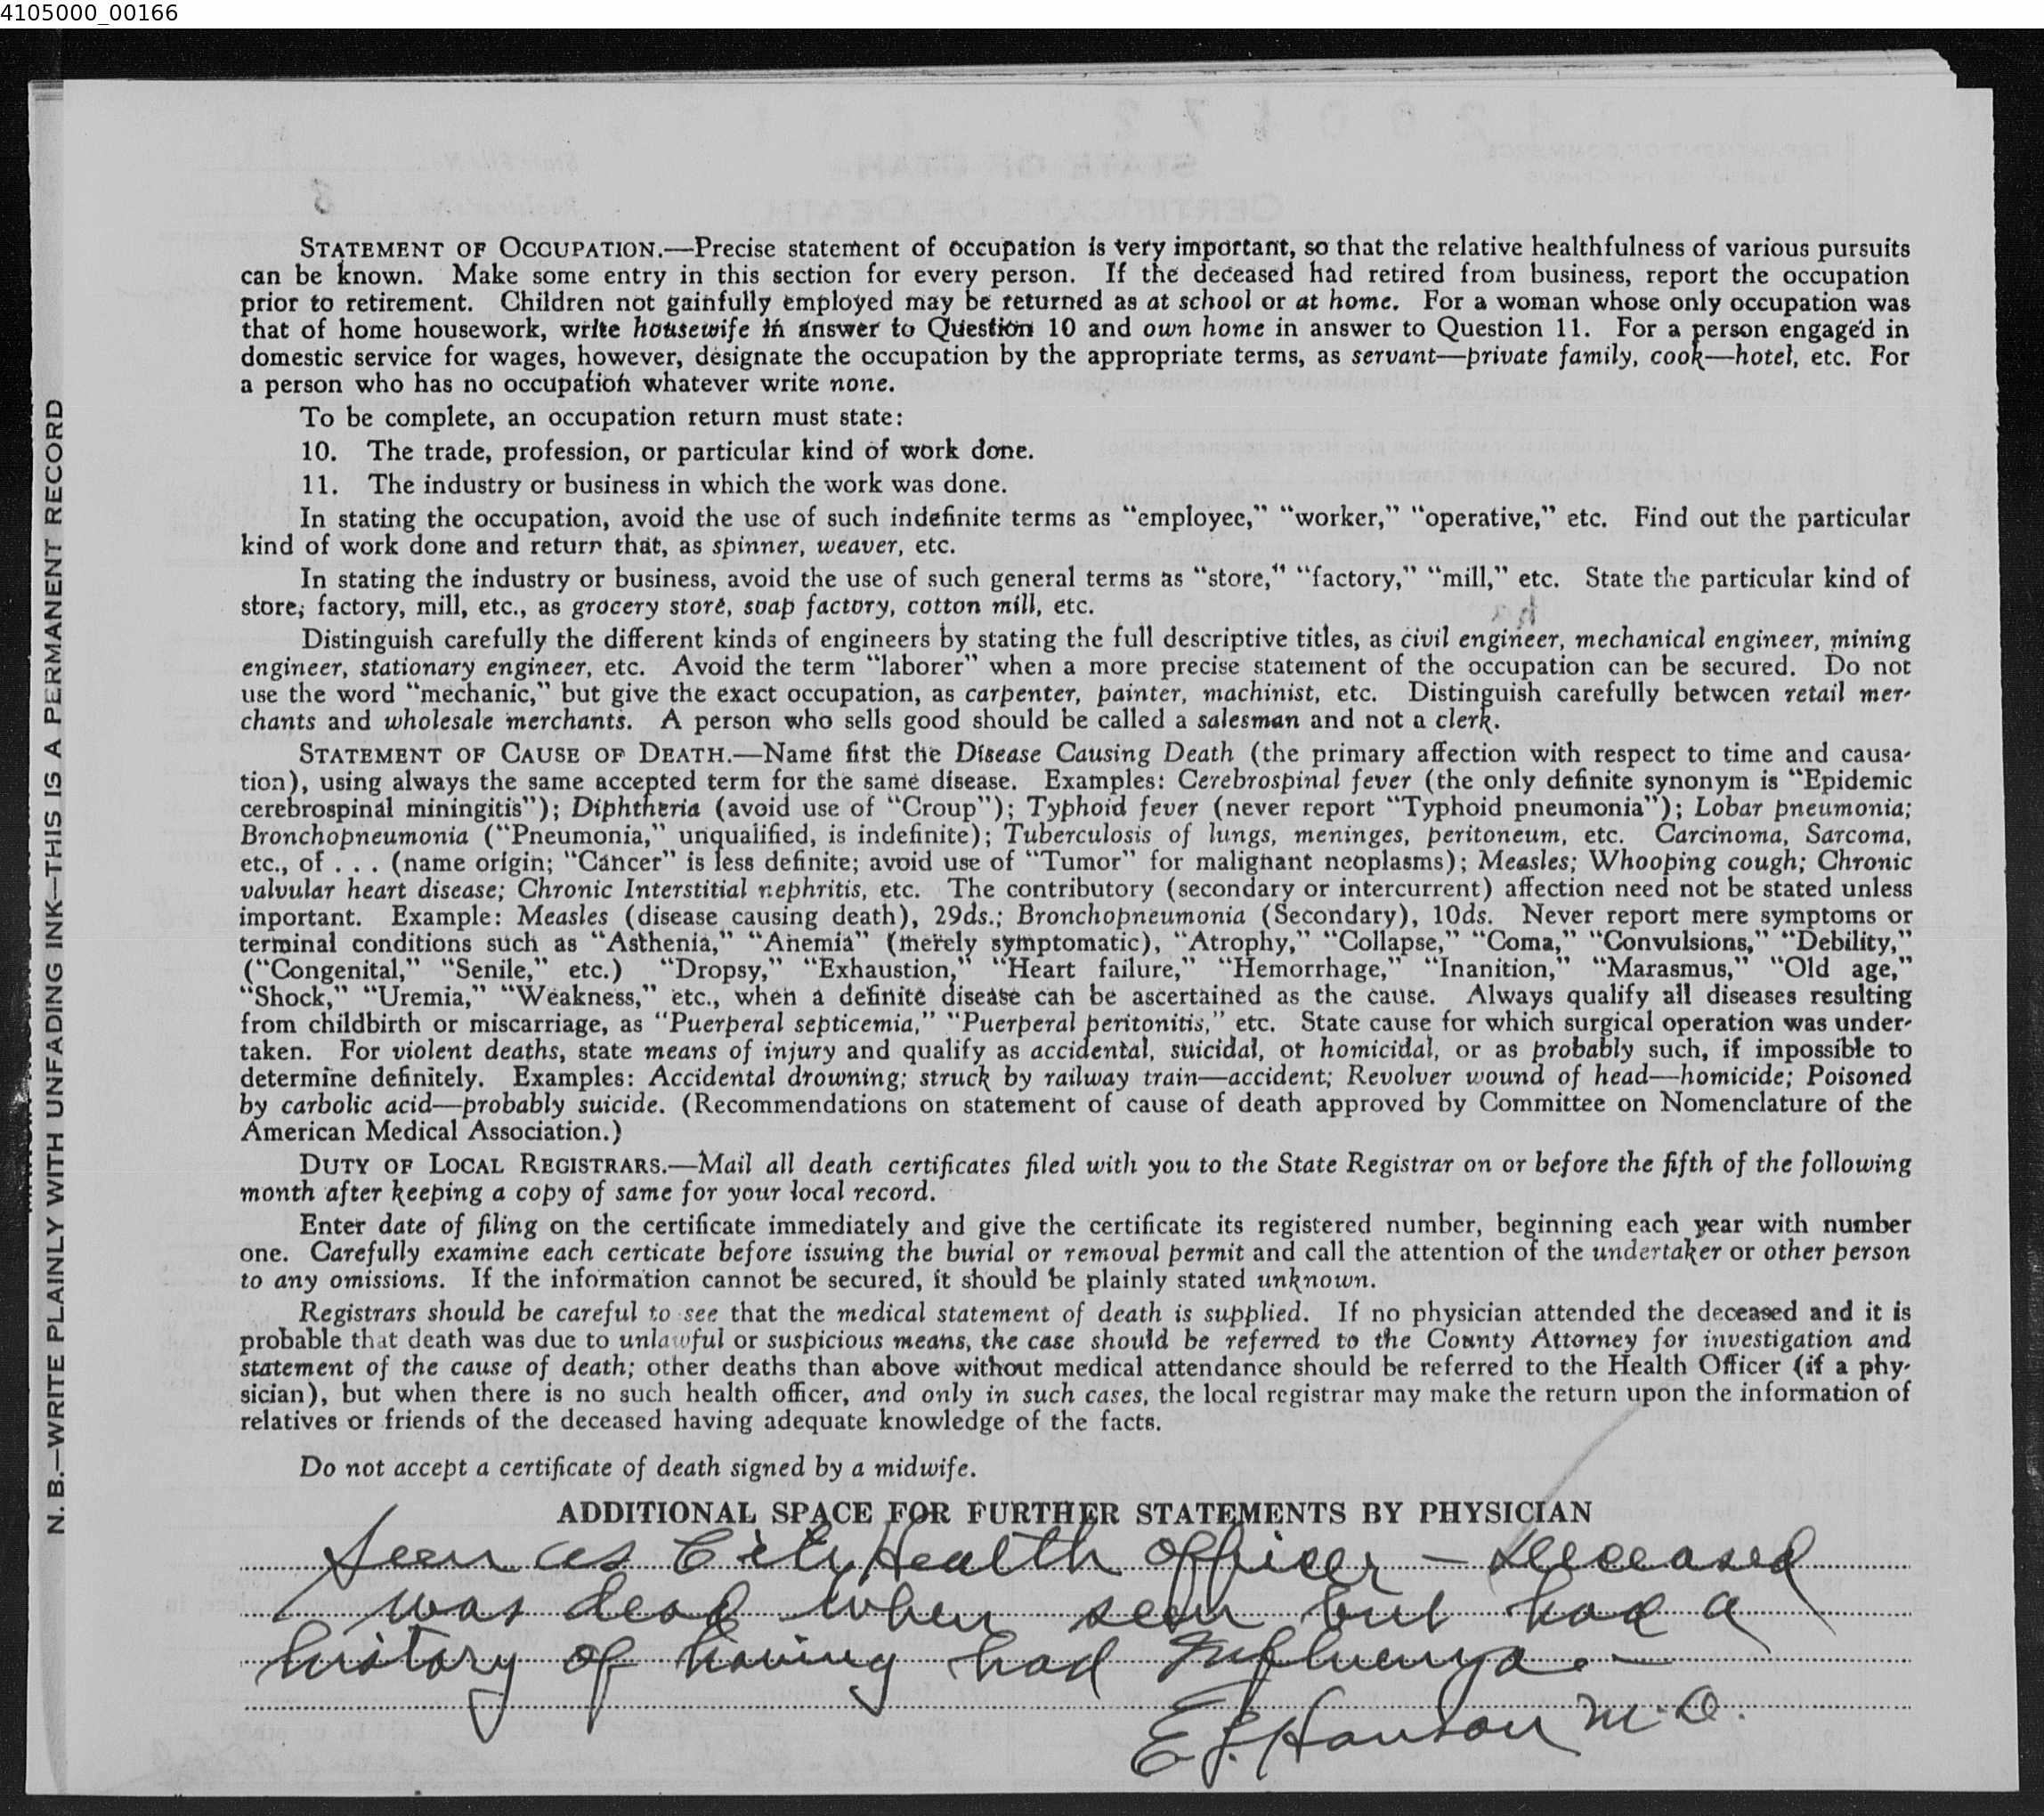 4105000_00166
N. B.—WRITE PLAINLY WITH UNFADING INK—THIS IS A PERMANENT RECORD
STATEMENT OF OCCUPATION.—Precise statement of occupation is very important, so that the relative healthfulness of various pursuits
can be known. Make some entry in this section for every person. If the deceased had retired from business, report the occupation
prior to retirement. Children not gainfully employed may be returned as at school or at home. For a woman whose only occupation was
that of home housework, write housewife in answer to Question 10 and own home in answer to Question 11. For a person engaged in
domestic service for wages, however, designate the occupation by the appropriate terms, as servant—private family, cook—hotel, etc. For
a person who has no occupation whatever write none.
To be complete, an occupation return must state:
10. The trade, profession, or particular kind of work done.
11. The industry or business in which the work was done.
In stating the occupation, avoid the use of such indefinite terms as “employee,” “worker,” “operative,” etc. Find out the particular
kind of work done and return that, as spinner, weaver, etc.
In stating the industry or business, avoid the use of such general terms as “store,” “factory,” “mill,” etc. State the particular kind of
store, factory, mill, etc., as grocery store, soap factory, cotton mill, etc.
Distinguish carefully the different kinds of engineers by stating the full descriptive titles, as civil engineer, mechanical engineer, mining
engineer, stationary engineer, etc. Avoid the term “laborer” when a more precise statement of the occupation can be secured. Do not
use the word “mechanic,” but give the exact occupation, as carpenter, painter, machinist, etc. Distinguish carefully between retail mer-
chants and wholesale merchants. A person who sells good should be called a salesman and not a clerk.
STATEMENT OF CAUSE OF DEATH.—Name first the Disease Causing Death (the primary affection with respect to time and causa-
tion), using always the same accepted term for the same disease. Examples: Cerebrospinal fever (the only definite synonym is “Epidemic
cerebrospinal miningitis”); Diphtheria (avoid use of “Croup”); Typhoid fever (never report “Typhoid pneumonia”); Lobar pneumonia;
Bronchopneumonia (“Pneumonia,” unqualified, is indefinite); Tuberculosis of lungs, meninges, peritoneum, etc. Carcinoma, Sarcoma,
etc., of . . . (name origin; “Cancer” is less definite; avoid use of “Tumor” for malignant neoplasms); Measles; Whooping cough; Chronic
valvular heart disease; Chronic Interstitial nephritis, etc. The contributory (secondary or intercurrent) affection need not be stated unless
important. Example: Measles (disease causing death), 29ds.; Bronchopneumonia (Secondary), 10ds. Never report mere symptoms or
terminal conditions such as “Asthenia,” “Anemia” (merely symptomatic), “Atrophy,” “Collapse,” “Coma,” “Convulsions,” “Debility,”
(“Congenital,” “Senile,” etc.) “Dropsy,” “Exhaustion,” “Heart failure,” “Hemorrhage,” “Inanition,” “Marasmus,” “Old age,”
“Shock,” “Uremia,” “Weakness,” etc., when a definite disease can be ascertained as the cause. Always qualify all diseases resulting
from childbirth or miscarriage, as “Puerperal septicemia,” “Puerperal peritonitis,” etc. State cause for which surgical operation was under-
taken. For violent deaths, state means of injury and qualify as accidental, suicidal, or homicidal, or as probably such, if impossible to
determine definitely. Examples: Accidental drowning; struck by railway train—accident; Revolver wound of head—homicide; Poisoned
by carbolic acid—probably suicide. (Recommendations on statement of cause of death approved by Committee on Nomenclature of the
American Medical Association.)
DUTY OF LOCAL REGISTRARS.—Mail all death certificates filed with you to the State Registrar on or before the fifth of the following
month after keeping a copy of same for your local record.
Enter date of filing on the certificate immediately and give the certificate its registered number, beginning each year with number
one. Carefully examine each certicate before issuing the burial or removal permit and call the attention of the undertaker or other person
to any omissions. If the information cannot be secured, it should be plainly stated unknown.
Registrars should be careful to see that the medical statement of death is supplied. If no physician attended the deceased and it is
probable that death was due to unlawful or suspicious means, the case should be referred to the County Attorney for investigation and
statement of the cause of death; other deaths than above without medical attendance should be referred to the Health Officer (if a phy-
sician), but when there is no such health officer, and only in such cases, the local registrar may make the return upon the information of
relatives or friends of the deceased having adequate knowledge of the facts.
Do not accept a certificate of death signed by a midwife.
ADDITIONAL SPACE FOR FURTHER STATEMENTS BY PHYSICIAN
Seen as City Health Officer – Deceased
was dead when seen but had a
history of having had Influenza. –
E J. Hanson M.D.